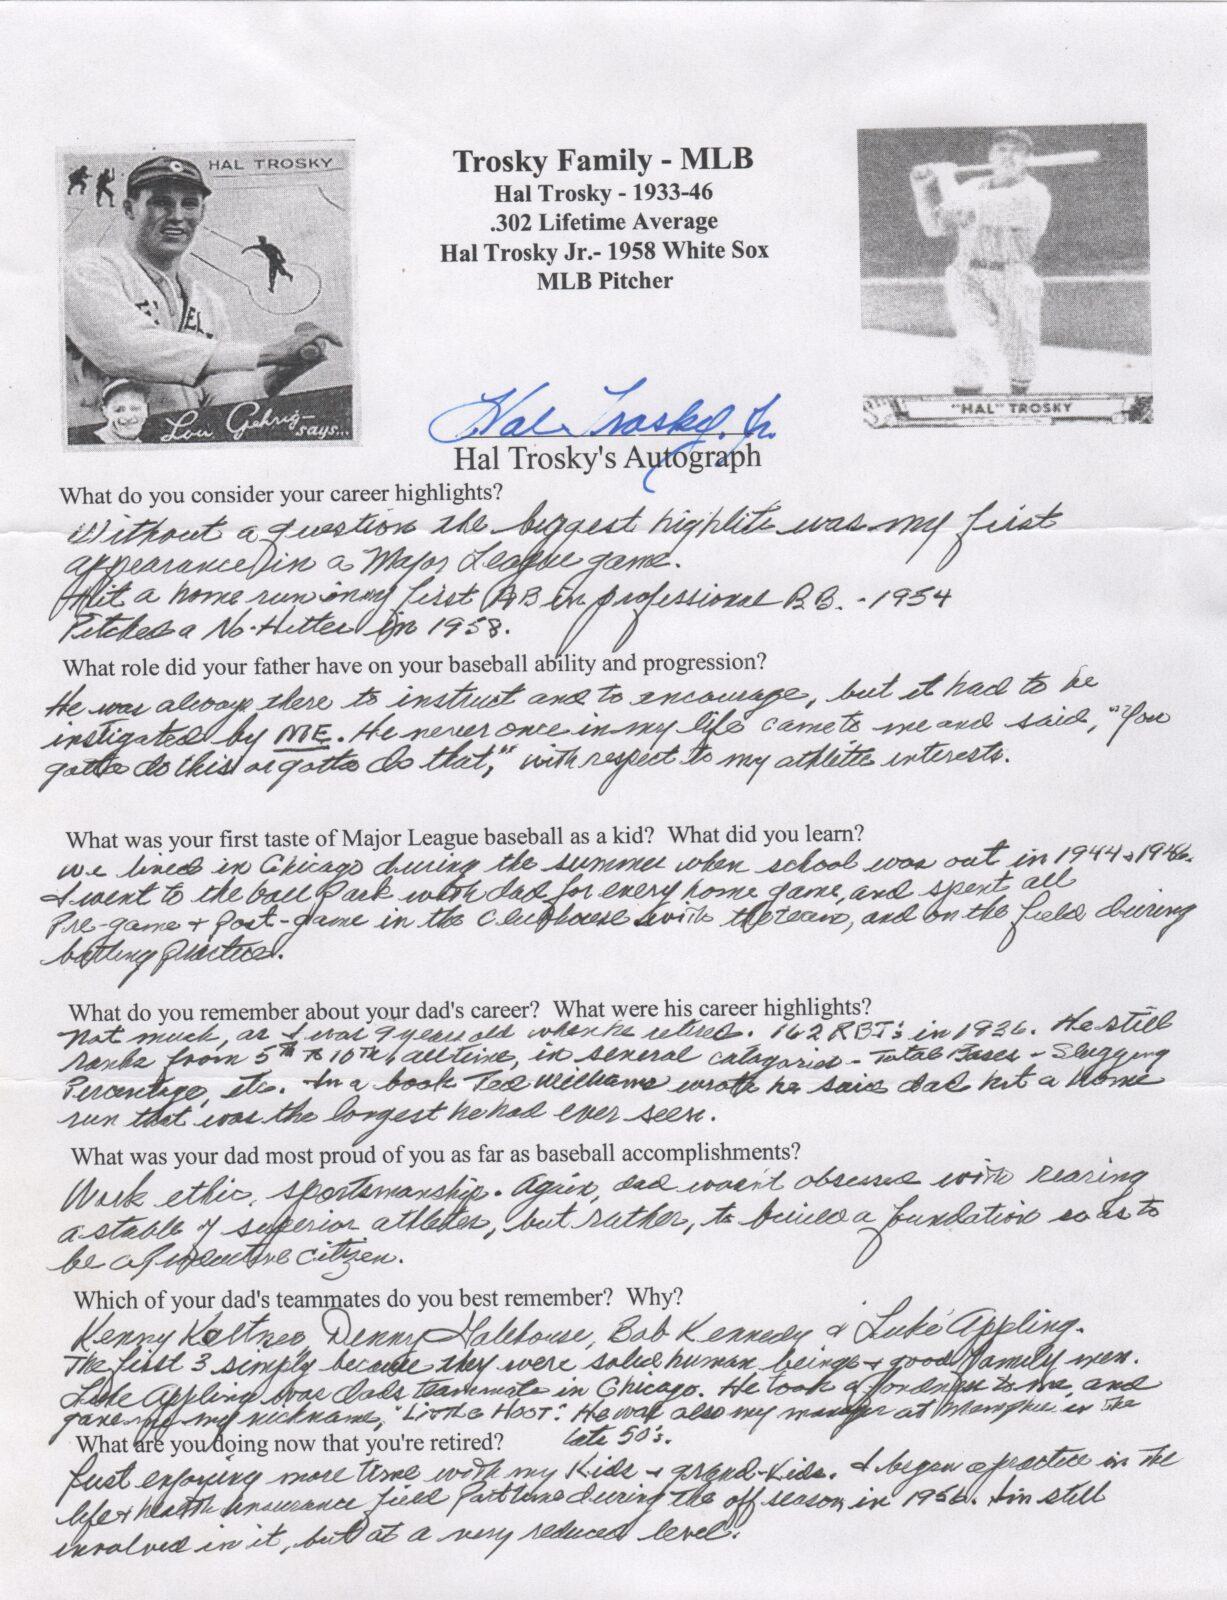 HAL TROSKY
Lou Gehrig says...
Trosky Family - MLB
Hal Trosky - 1933-46
.302 Lifetime Average
Hal Trosky Jr.- 1958 White Sox
MLB Pitcher
"HAL" TROSKY
Hal Trosky, Jr.
Hal Trosky's Autograph
What do you consider your career highlights?
Without a question the biggest highlite was my first
appearance in a Major League game.
Hit a home run in my first AB in professional B.B. - 1954
Pitched a No-Hitter in 1958.
What role did your father have on your baseball ability and progression?
He was always there to instruct and to encourage, but it had to be
instigated by ME. He never once in my life came to me and said, "You
gotta do this or gotta do that," with respect to my athletic interests.
What was your first taste of Major League baseball as a kid? What did you learn?
We lived in Chicago during the summer when school was out in 1944 & 1946.
I went to the ball park with dad for every home game, and spent all
Pre-game + post-game in the clubhouse with the team, and on the field during
batting practice.
What do you remember about your dad's career? What were his career highlights?
Not much, as I was 9 years old when he retired. 162 RBI's in 1936. He still
ranks from 5th to 10th, all time, in several catagories - Total Bases - Slugging
Percentage, etc. In a book Ted Williams wrote he said dad hit a home
run that was the longest he had ever seen.
What was your dad most proud of you as far as baseball accomplishments?
Work ethic, sportsmanship. Again, dad wasn't obsessed with rearing
a stable of superior athletes, but rather, to build a foundation so as to
be a productive citizen.
Which of your dad's teammates do you best remember? Why?
Kenny Keltner, Denny Galehouse, Bob Kennedy & Luke Appling.
The first 3 simply because they were solid human beings + good family men.
Luke Appling was dads teammate in Chicago. He took a fondness to me, and
gave me my nickname, "Little Hoot". He was also my manager at Memphis in the
late 50's.
What are you doing now that you're retired?
Just enjoying more time with my kids + grand-kids. I began a practice in the
life + health insurance field part time during the off season in 1956. Am still
involved in it, but at a very reduced level.